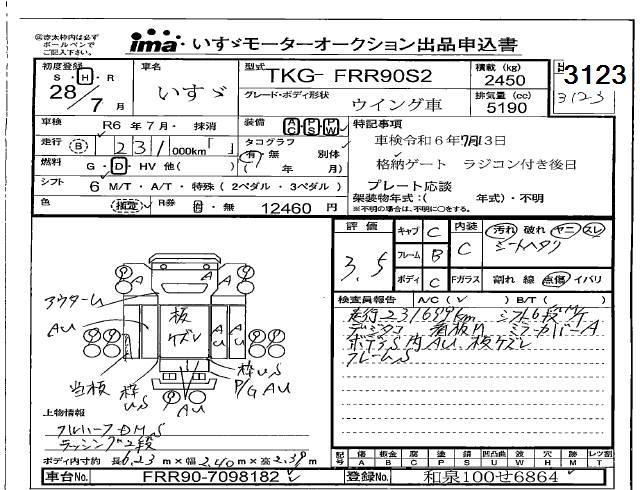 ㊟赤太枠内は必ず
ボールペンで
ご記入下さい。
ima いすゞモーターオークション出品申込書
初度登録
S・H・R
28/7月
車名
いすゞ
型式
TKG- FRR90S2
グレード・ボディ形状
ウイング車
積載(kg)
2450
排気量(cc)
5190
3123
3123
車検 R6年7月・抹消
走行 B 231000km「 」
燃料 G・D・HV 他( )
シフト 6 M/T・A/T・特殊(2ペダル・3ペダル)
色
R券 ・無 12460円
装備 AC PS PW
タコグラフ
有・無 別体
( 年 月)
特記事項
車検令和6年7月13日
格納ゲート ラジコン付き後日
プレート応談
架装物年式:( 年式)・不明
※不明の場合は、不明に○をする。
評価
3.5
キャブ C
フレーム B
ボディ C
内装 C
汚れ 破れ ヤニ スレ
シートヘタリ
Fガラス 割れ 線 点傷 イバリ
検査員報告 A/C(✓) B/T( )
走行231699km シフト6段
デジタコ 看板
ボデーS 内AU、板ケズレ
フレームS
アウターム
AU
板
ケズレ
A
A
当板
枠
US
枠US
P/G AU
上物情報
フルハーフDMS
ラッシング2段
ボディ内寸約 長6.23m×幅2.40m×高2.39m
記号 傷A 板金B 腐C 塗P 錆S 凹凸曲U 波W 穴H 跡M レツ割T
車台No. FRR90-7098182
登録No. 和泉100せ6864